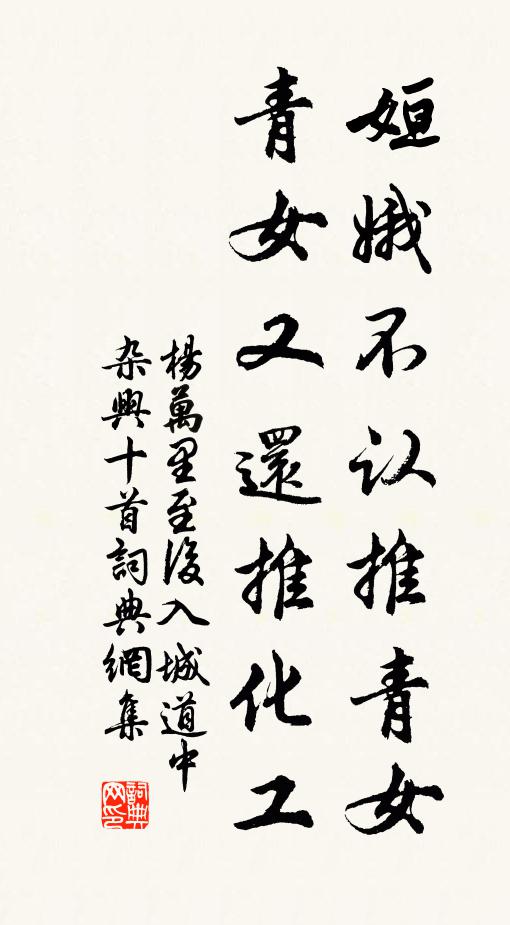 姮娥不认推青女
青女又還推化工
楊萬里至後入城道中
杂興十首詞典網集
詞典网印